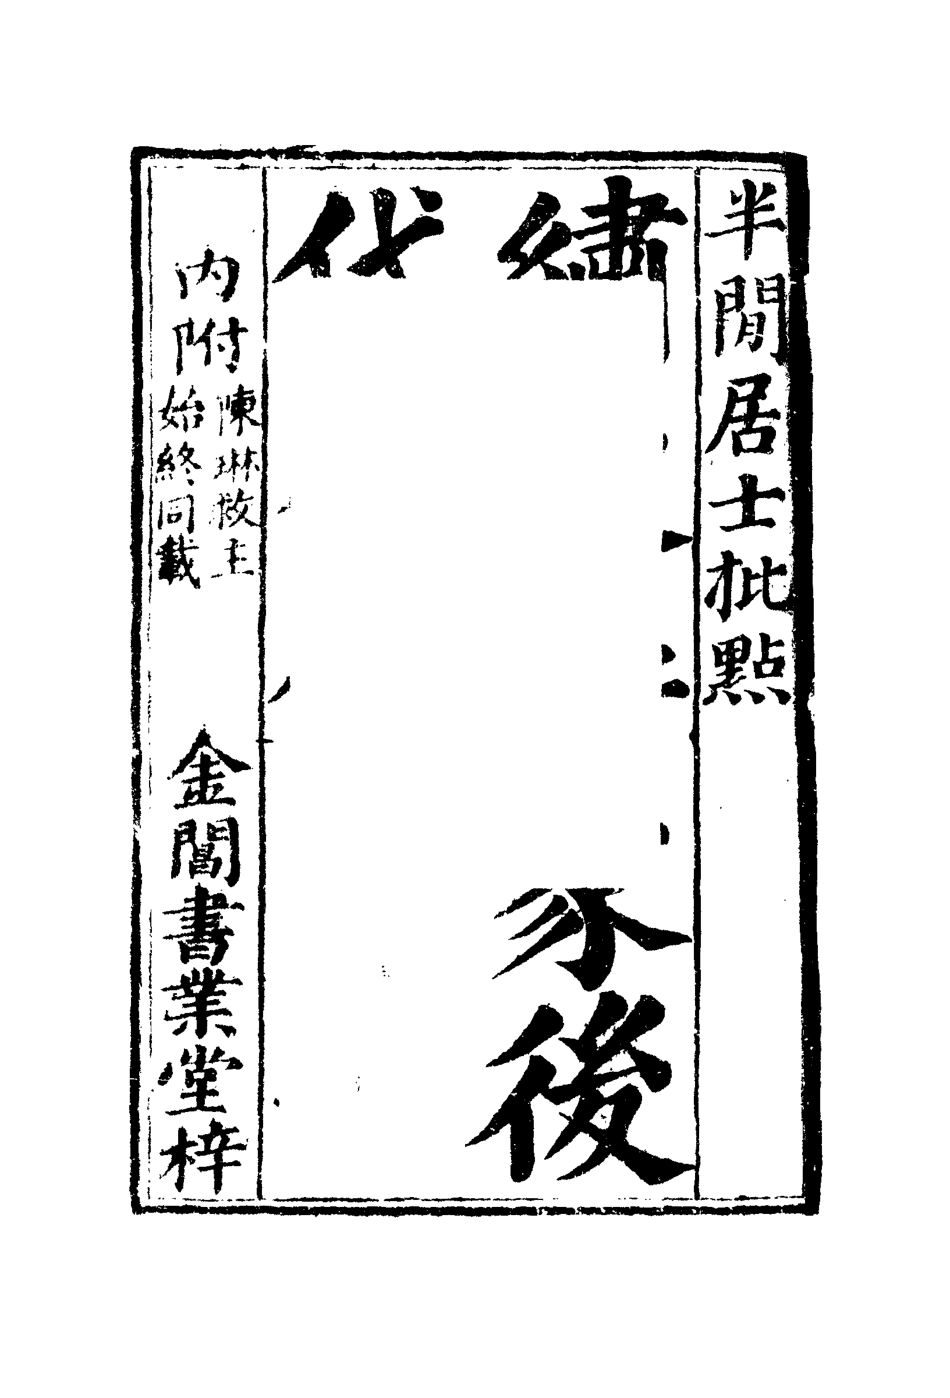 半閒居士批點
繡
後
代
内附
陳琳救主
始終同載
金閶書業堂梓